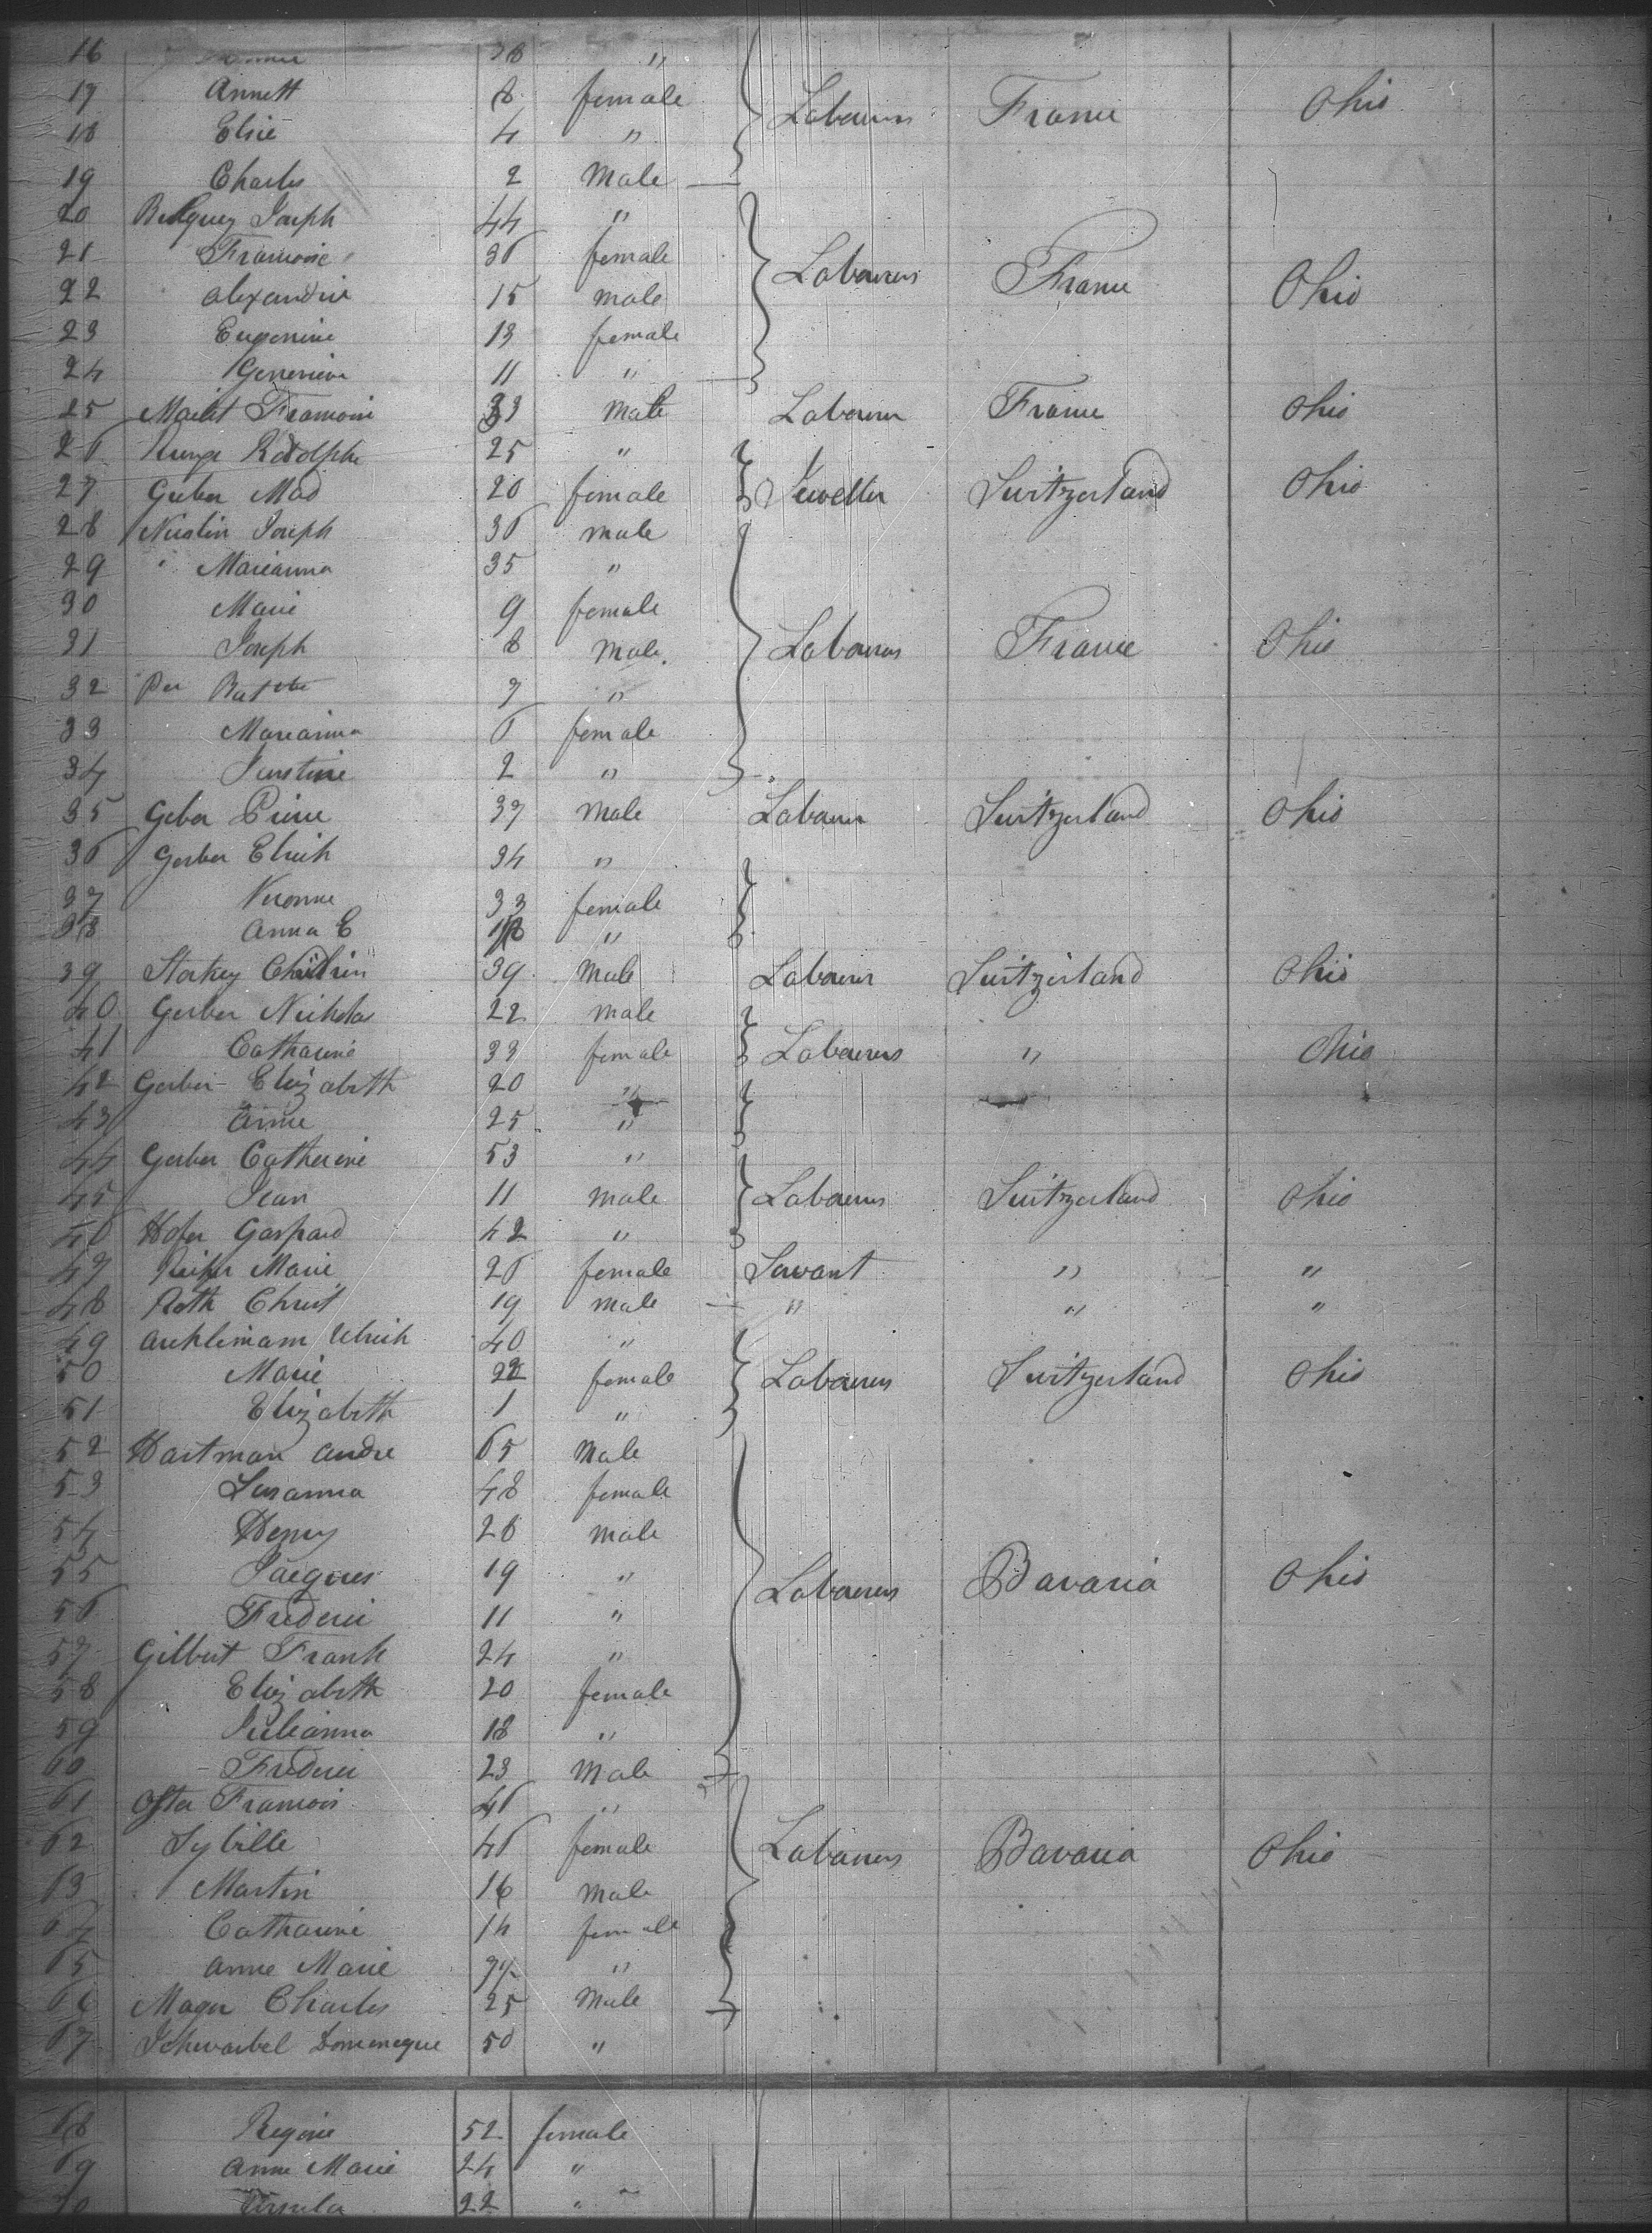 16 38 "
17 Annett 8 female Labourers France Ohio
18 Elsie 4 "
19 Charles 2 Male
20 Joseph 44 "
21 Francoise 36 female Labourers France Ohio
22 Alexandrie 15 male
23 Eugenine 13 female
24 Genevieve 11 "
25 Francois 33 Male Labourer France Ohio
26 Rodolphe 25 "
27 Gerber Mad 20 female Jeweller Switzerland Ohio
28 Joseph 36 male
29 " Marianna 35 "
30 Marie 9 female
31 Joseph 8 Male Labourers France Ohio
32 7 "
33 Marianna 6 female
34 Justine 2 "
35 Geber Pierre 37 Male Labourer Switzerland Ohio
36 Gerber Elrich 34 "
37 Veronne 33 female
38 Anna E "
39 39 Male Labourer Switzerland Ohio
40 Gerber Nicholas 22 male
41 Catharine 33 female Labourers " Ohio
42 Gerber Elizabeth 20 "
43 Anne 25 "
44 Gerber Catherine 53 "
45 Jean 11 male Labourers Switzerland Ohio
46 Hofer Gaspard 42 "
47 Marie 26 female Servant " "
48 Roth Christ 19 male " " "
49 Ulrich 40 "
50 Marie 22 female Labourers Switzerland Ohio
51 Elizabeth 1 "
52 Hartman Andre 65 Male
53 Susanna 48 female
54 Henry 28 male
55 Jacques 19 " Labourers Bavaria Ohio
56 Frederic 11 "
57 Gilbert Frank 24 "
58 Elizabeth 20 female
59 Julianna 18 "
60 Frederic 23 Male
61 Oster Francois 46 "
62 Sybille 46 female Labourers Bavaria Ohio
63 Martin 16 Male
64 Catharine 14 female
65 Anne Marie "
66 Mager Charles 25 Male
67 Schwaebel Domenique 50 "
68 Regine 52 female
69 Anne Marie 24 "
70 Ursula 22 "